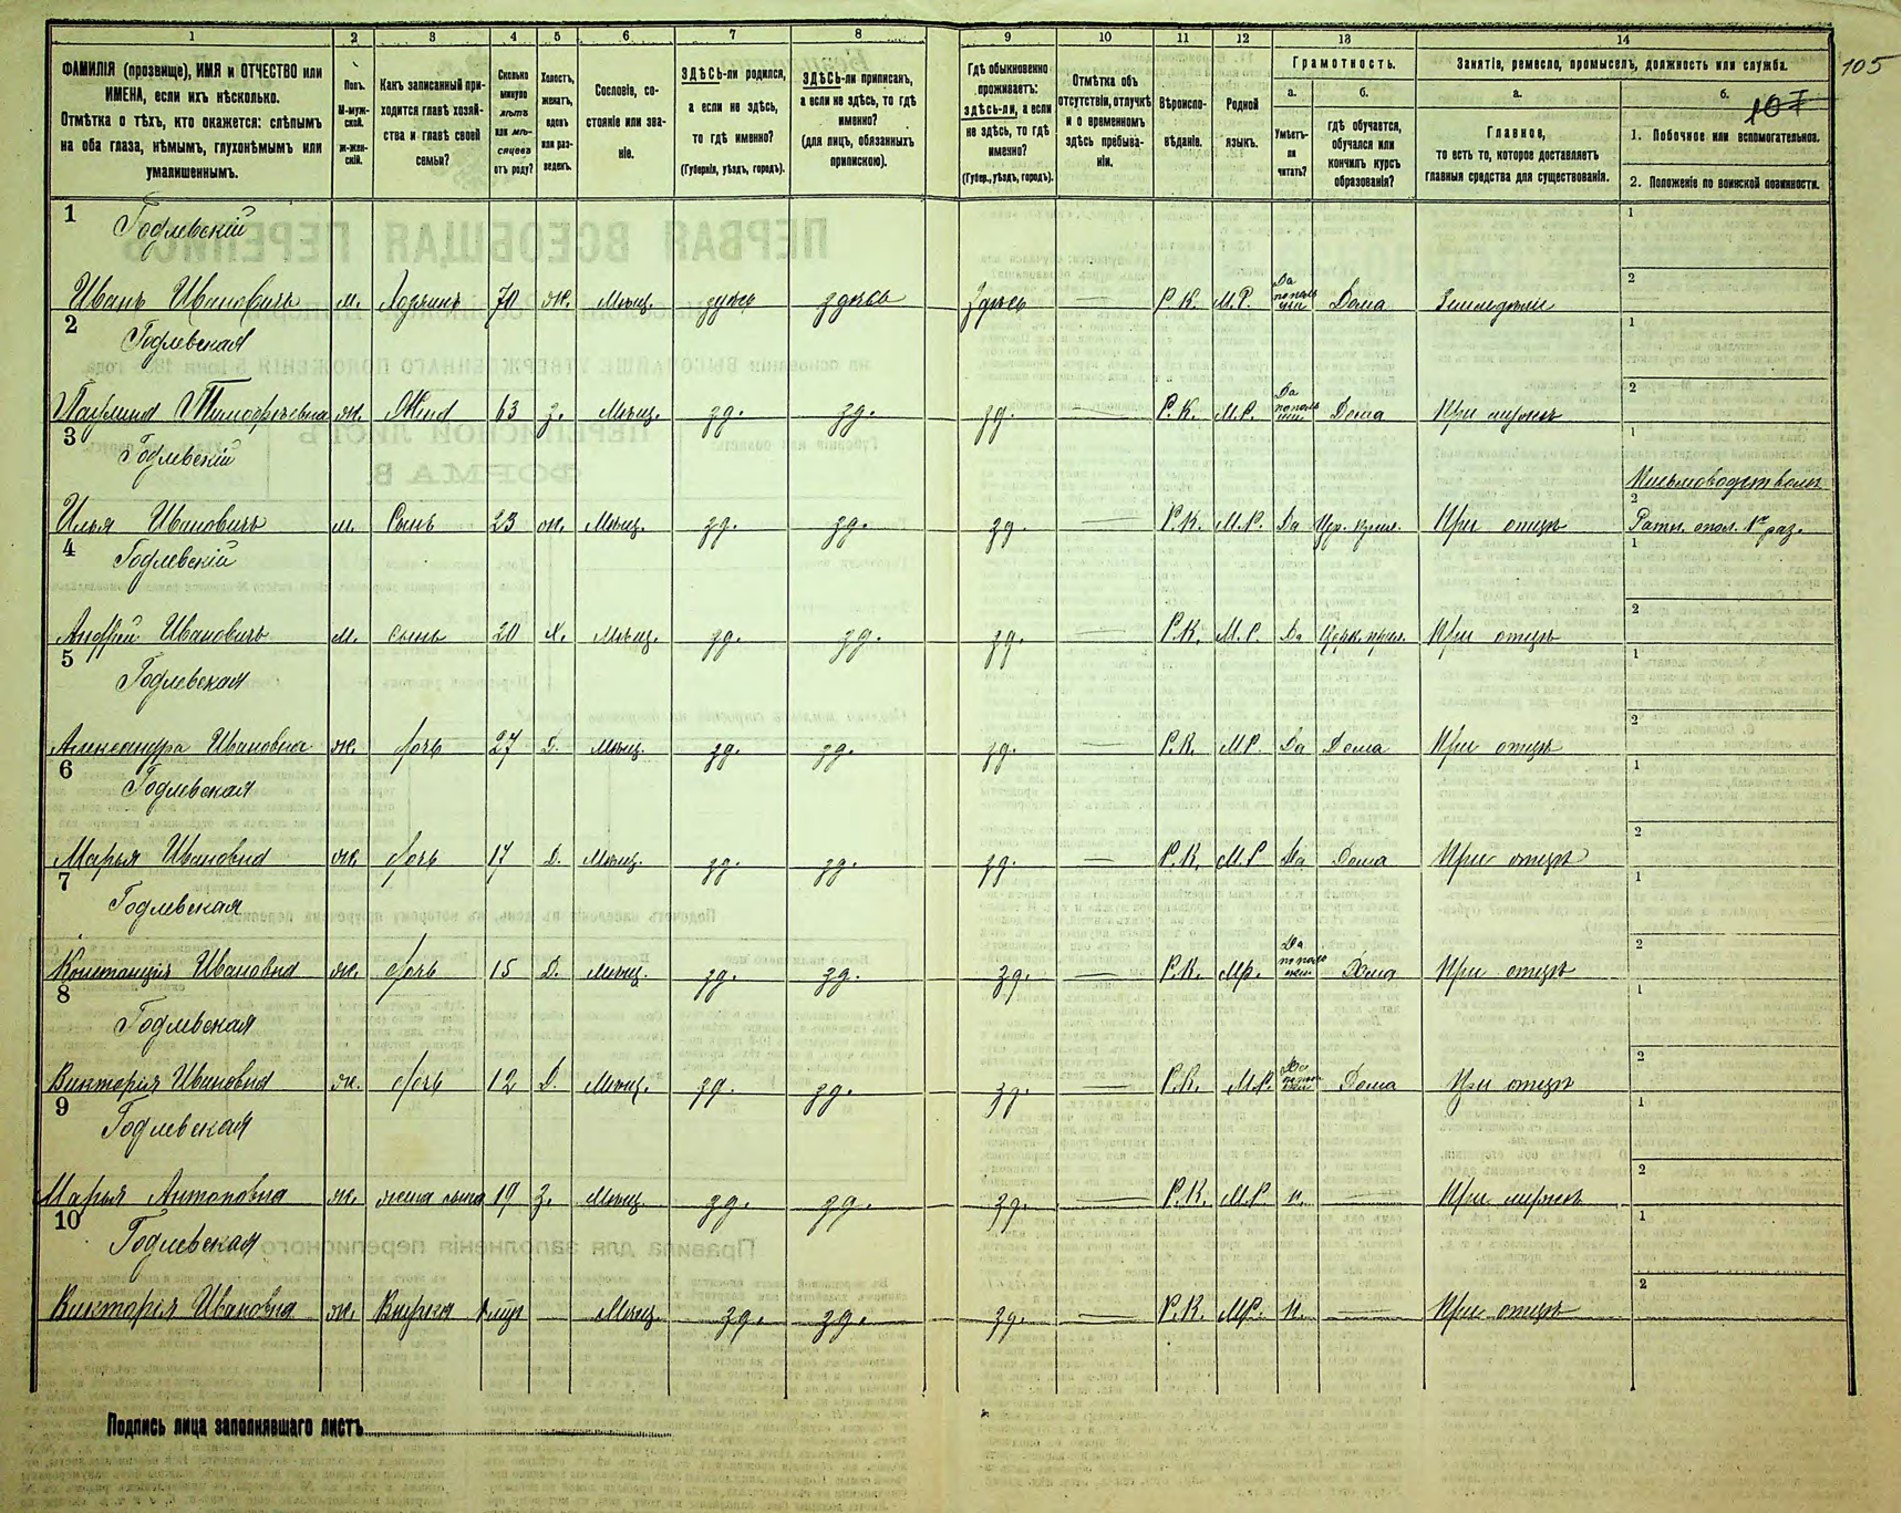 1 2 3 4 5 6 7 8 9 10 11 12 13 14
105
ФАМИЛІЯ (прозвище), ИМЯ и ОТЧЕСТВО или
ИМЕНА, если ихъ нѣсколько.
Отмѣтка о тѣхъ, кто окажется: слѣпымъ
на оба глаза, нѣмымъ, глухонѣмымъ или
умалишеннымъ.
Полъ.
М-муж-
ской.
ж-жен-
скій.
Какъ записанный при-
ходится главѣ хозяй-
ства и главѣ своей
семьи?
Сколько
минуло
лѣтъ
или мѣ-
сяцевъ
отъ роду?
Холостъ,
женатъ,
вдовъ
или раз-
веденъ.
Сословіе, со-
стояніе или зва-
ніе.
ЗДѢСЬ-ли родился,
а если не здѣсь,
то гдѣ именно?
(Губернія, уѣздъ, городъ).
ЗДѢСЬ-ли приписанъ,
а если не здѣсь, то гдѣ
именно?
(для лицъ, обязанныхъ
припискою).
Гдѣ обыкновенно
проживаетъ:
здѣсь-ли, а если
не здѣсь, то гдѣ
именно?
(Губер., уѣздъ, городъ).
Отмѣтка объ
отсутствіи, отлучкѣ
и о временномъ
здѣсь пребыва-
ніи.
Вѣроиспо-
вѣданіе.
Родной
языкъ.
Грамотность.
а.
Умѣетъ-
ли
читать?
б.
гдѣ обучается,
обучался или
кончилъ курсъ
образованія?
Занятіе, ремесло, промыселъ, должность или служба.
а.
Главное,
то есть то, которое доставляетъ
главныя средства для существованія.
б.
1. Побочное или вспомогательное.
2. Положеніе по воинской повинности.
1 Годлевскій
Иванъ Ивановичъ м. Хозяинъ 70 ж. Мѣщ. здѣсь здѣсь здѣсь — Р. К. М.Р. Да Дома Земледѣліе
2 Годлевская
Паулина Тимофеевна ж. Жена 63 з. Мѣщ. зд. зд. зд. — Р. К. М.Р. Да Дома При мужѣ
3 Годлевскій
Письмоводитель
Илья Ивановичъ м. Сынъ 23 ж. Мѣщ. зд. зд. зд. — Р.К. М.Р. Да При отцѣ Ратн. опол. 1го раз.
4 Годлевскій
Андрей Ивановичъ м. сынъ 20 х. Мѣщ. зд. зд. зд. — Р.К. М.Р. Да При отцѣ
5 Годлевская
Александра Ивановна ж. дочь 27 Д. Мѣщ. зд. зд. зд. — Р.К. М.Р. Да Дома При отцѣ
6 Годлевская
Марья Ивановна ж. дочь 17 Д. Мѣщ. зд. зд. зд. — Р.К. М.Р. Да Дома При отцѣ
7 Годлевская
Констанція Ивановна ж. дочь 15 Д. Мѣщ. зд. зд. зд. — Р.К. М.р. Да Дома При отцѣ
8 Годлевская
Викторія Ивановна ж. дочь 12 Д. Мѣщ. зд. зд. зд. — Р.К. М.Р. Да Дома При отцѣ
9 Годлевская
Марья Антоновна ж. жена сына 19 з. Мѣщ. зд. зд. зд. — Р.К. М.Р. н. — При мужѣ
10 Годлевская
Викторія Ивановна ж. Внучка — Мѣщ. зд. зд. зд. — Р.К. М.Р. Н. — При отцѣ
Подпись лица заполнявшаго листъ